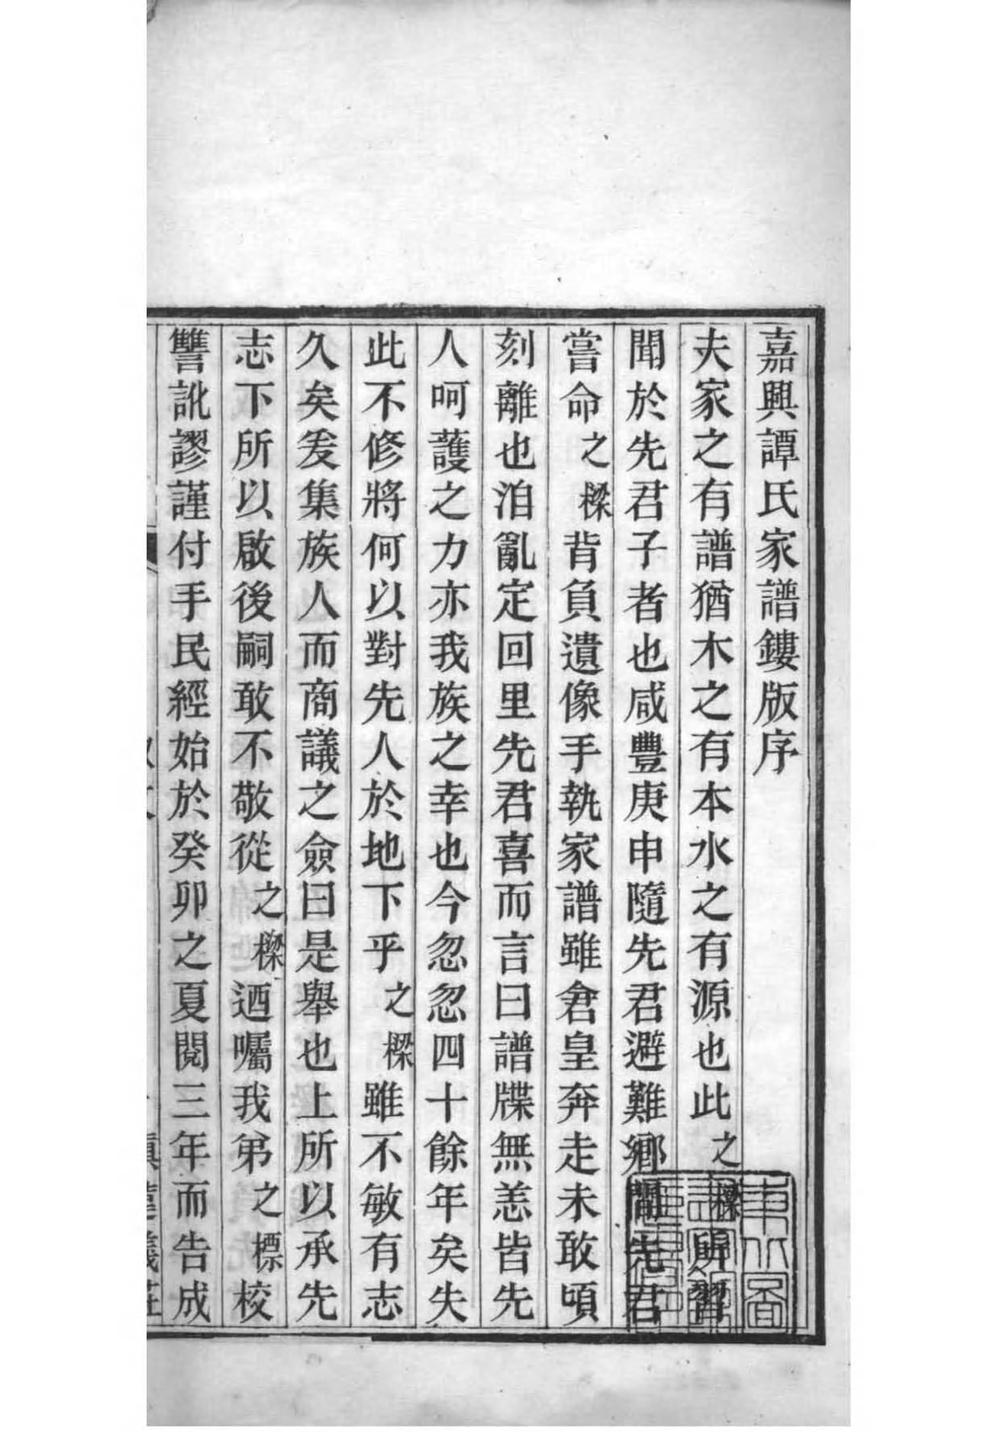 嘉興譚氏家譜鏤版序
夫家之有譜猶木之有本水之有源也此之樑所習
聞於先君子者也咸豐庚申隨先君避難鄉間先君
嘗命之樑背負遺像手執家譜雖倉皇奔走未敢頃
刻離也洎亂定回里先君喜而言曰譜牒無恙皆先
人呵護之力亦我族之幸也今忽忽四十餘年矣失
此不修將何以對先人於地下乎之樑雖不敏有志
久矣爰集族人而商議之僉曰是舉也上所以承先
志下所以啟後嗣敢不敬從之樑迺囑我弟之標校
讐訛謬謹付手民經始於癸卯之夏閱三年而告成